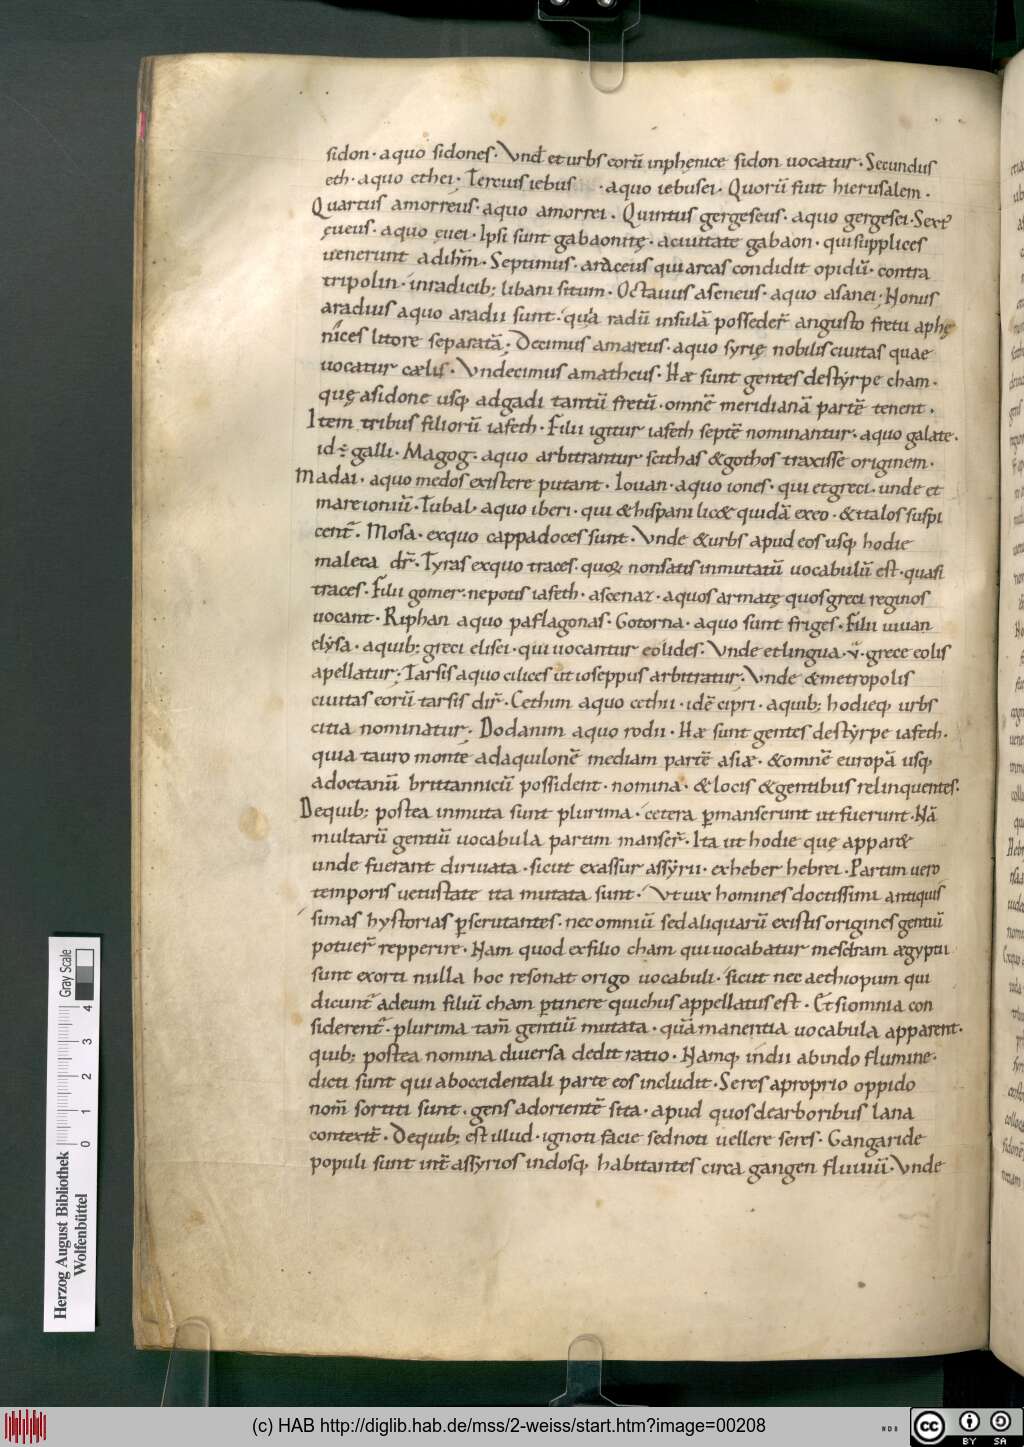 sidon · a quo sidones · Vnđ et urbs eorū in phęnice sidon uocatur · Secundus
eth · a quo ethei · Tercius iebus · a quo iebusei · Quorū fuit hierusalem ·
Quartus amorreus · a quo amorrei · Quintus gergeseus · a quo gergesei · Sext᷒
ęueus · a quo ęuei · Ipsi sunt gabaonitę · a ciuitate gabaon · qui supplices
uenerunt ad ihm̄ · Septimus · araceus qui arcas condidit opidū · contra
tripolin · in radicib; libani situm · Octauus aseneus · a quo asanei · Nonus
aradius a quo aradii sunt · qui aradū insulā posseder̄ angusto fretu a phę
nices litore separatā · Decimus amareus · a quo syrię nobilis ciuitas quae
uocatur cælis · Vndecimus amatheus · Hæ sunt gentes de styrpe cham ·
quę a sidone usq; ad gaditantū fretū · omnē meridianā partē tenent ·
Item tribus filiorū iafeth · Filii igitur iafeth septē nominantur · a quo galate ·
id ÷ galli · Magog · a quo arbitrantur scithas & gothos traxisse originem ·
Madai · a quo medos existere putant · Iouan · a quo iones · qui et greci · unde et
mare ioniū · Tubal · a quo iberi · qui & hispani lic& quidā ex eo · & italos suspi
cent̄ · Mosa · ex quo cappadoces sunt · Vnde & urbs apud eos usq; hodie
maleca dr̄ · Tyras ex quo traces · quoꝝ non satis inmutatū uocabulū est · quasi
traces · Filii gomer · nepotis iafeth · ascenaz · a quo sarmatę quos greci reginos
uocant · Riphan a quo paflagonas · Gotorna · a quo sunt friges · Filii iuuan
elysa · a quib; greci elisei · qui uocantur eolides · Vnde et lingua · v̄ · grece eolis
apellatur · Tarsis a quo cilices ut ioseppus arbitratur · Vnde & metropolis
ciuitas eorū tarsis dir̄ · Cethim a quo cethii · idē cipri · a quib; hodieq; urbs
citia nominatur · Dodanim a quo rodii · Hæ sunt gentes de styrpe iafeth ·
quia tauro monte ad aquilonē mediam partē asiæ · & omnē europā usq;
ad octanū brittannicū possident · nomina · & locis & gentibus relinquentes ·
De quib; postea inmuta sunt plurima · cetera p̄manserunt ut fuerunt · Nā
multarū gentiū uocabula partim manser̄ · Ita ut hodie quę appar&
unde fuerant diriuata · sicut ex assur assyrii · ex heber hebrei · Partim uero
temporis uetustate ita mutata sunt · Vt uix homines doctissimi antiquis
simas hystorias p̄scrutantes · nec omniū sed aliquarū ex istis origines gentiū
potuer̄ repperire · Nam quod ex filio cham qui uocabatur mesdram ægyptii
sunt exorti nulla hoc resonat origo uocabuli · sicut nec aethiopum qui
dicunt̄ ad eum filiū cham p̄tinere qui chus appellatus est · Et si omnia con
siderent̄ · plurima tam̄ gentiū mutata · quā manentia uocabula apparent ·
quib; postea nomina diuersa dedit ratio · Namq; indii ab indo flumine ·
dicti sunt qui ab occidentali parte eos includit · Seres a proprio oppido
nom̄ sortiti sunt · gens ad orientē sita · apud quos de arboribus lana
contexit̄ · De quib; est illud · ignoti facie sed noti uellere seres · Gangaride
populi sunt int̄ assyrios indosq; habitantes circa gangen fluuiū · Vnde
Herzog August Bibliothek
Wolfenbüttel
0 1 2 3 4
Gray Scale
(c) HAB http://diglib.hab.de/mss/2-weiss/start.htm?image=00208
cc BY SA